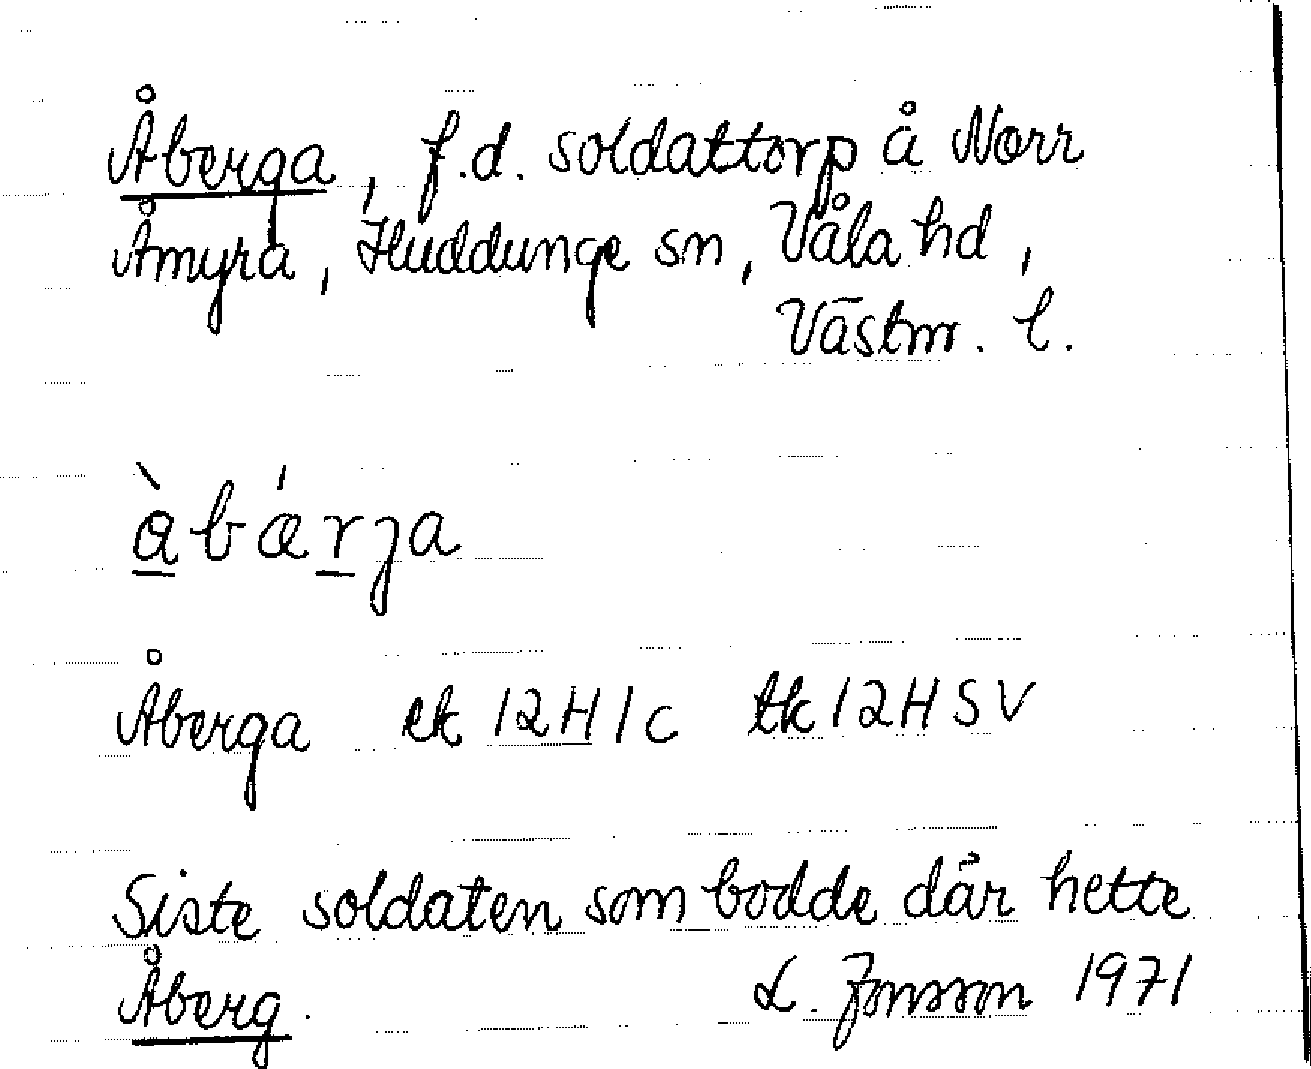 Åberga, f.d. soldattorp å Norr
Åmyra, Huddunge sn, Våla hd,
Västm. l.
à̱bárja
Åberga ek 12H1c tk 12HSV
Siste soldaten som bodde där hette
Åberg.
L. Jonsson 1971